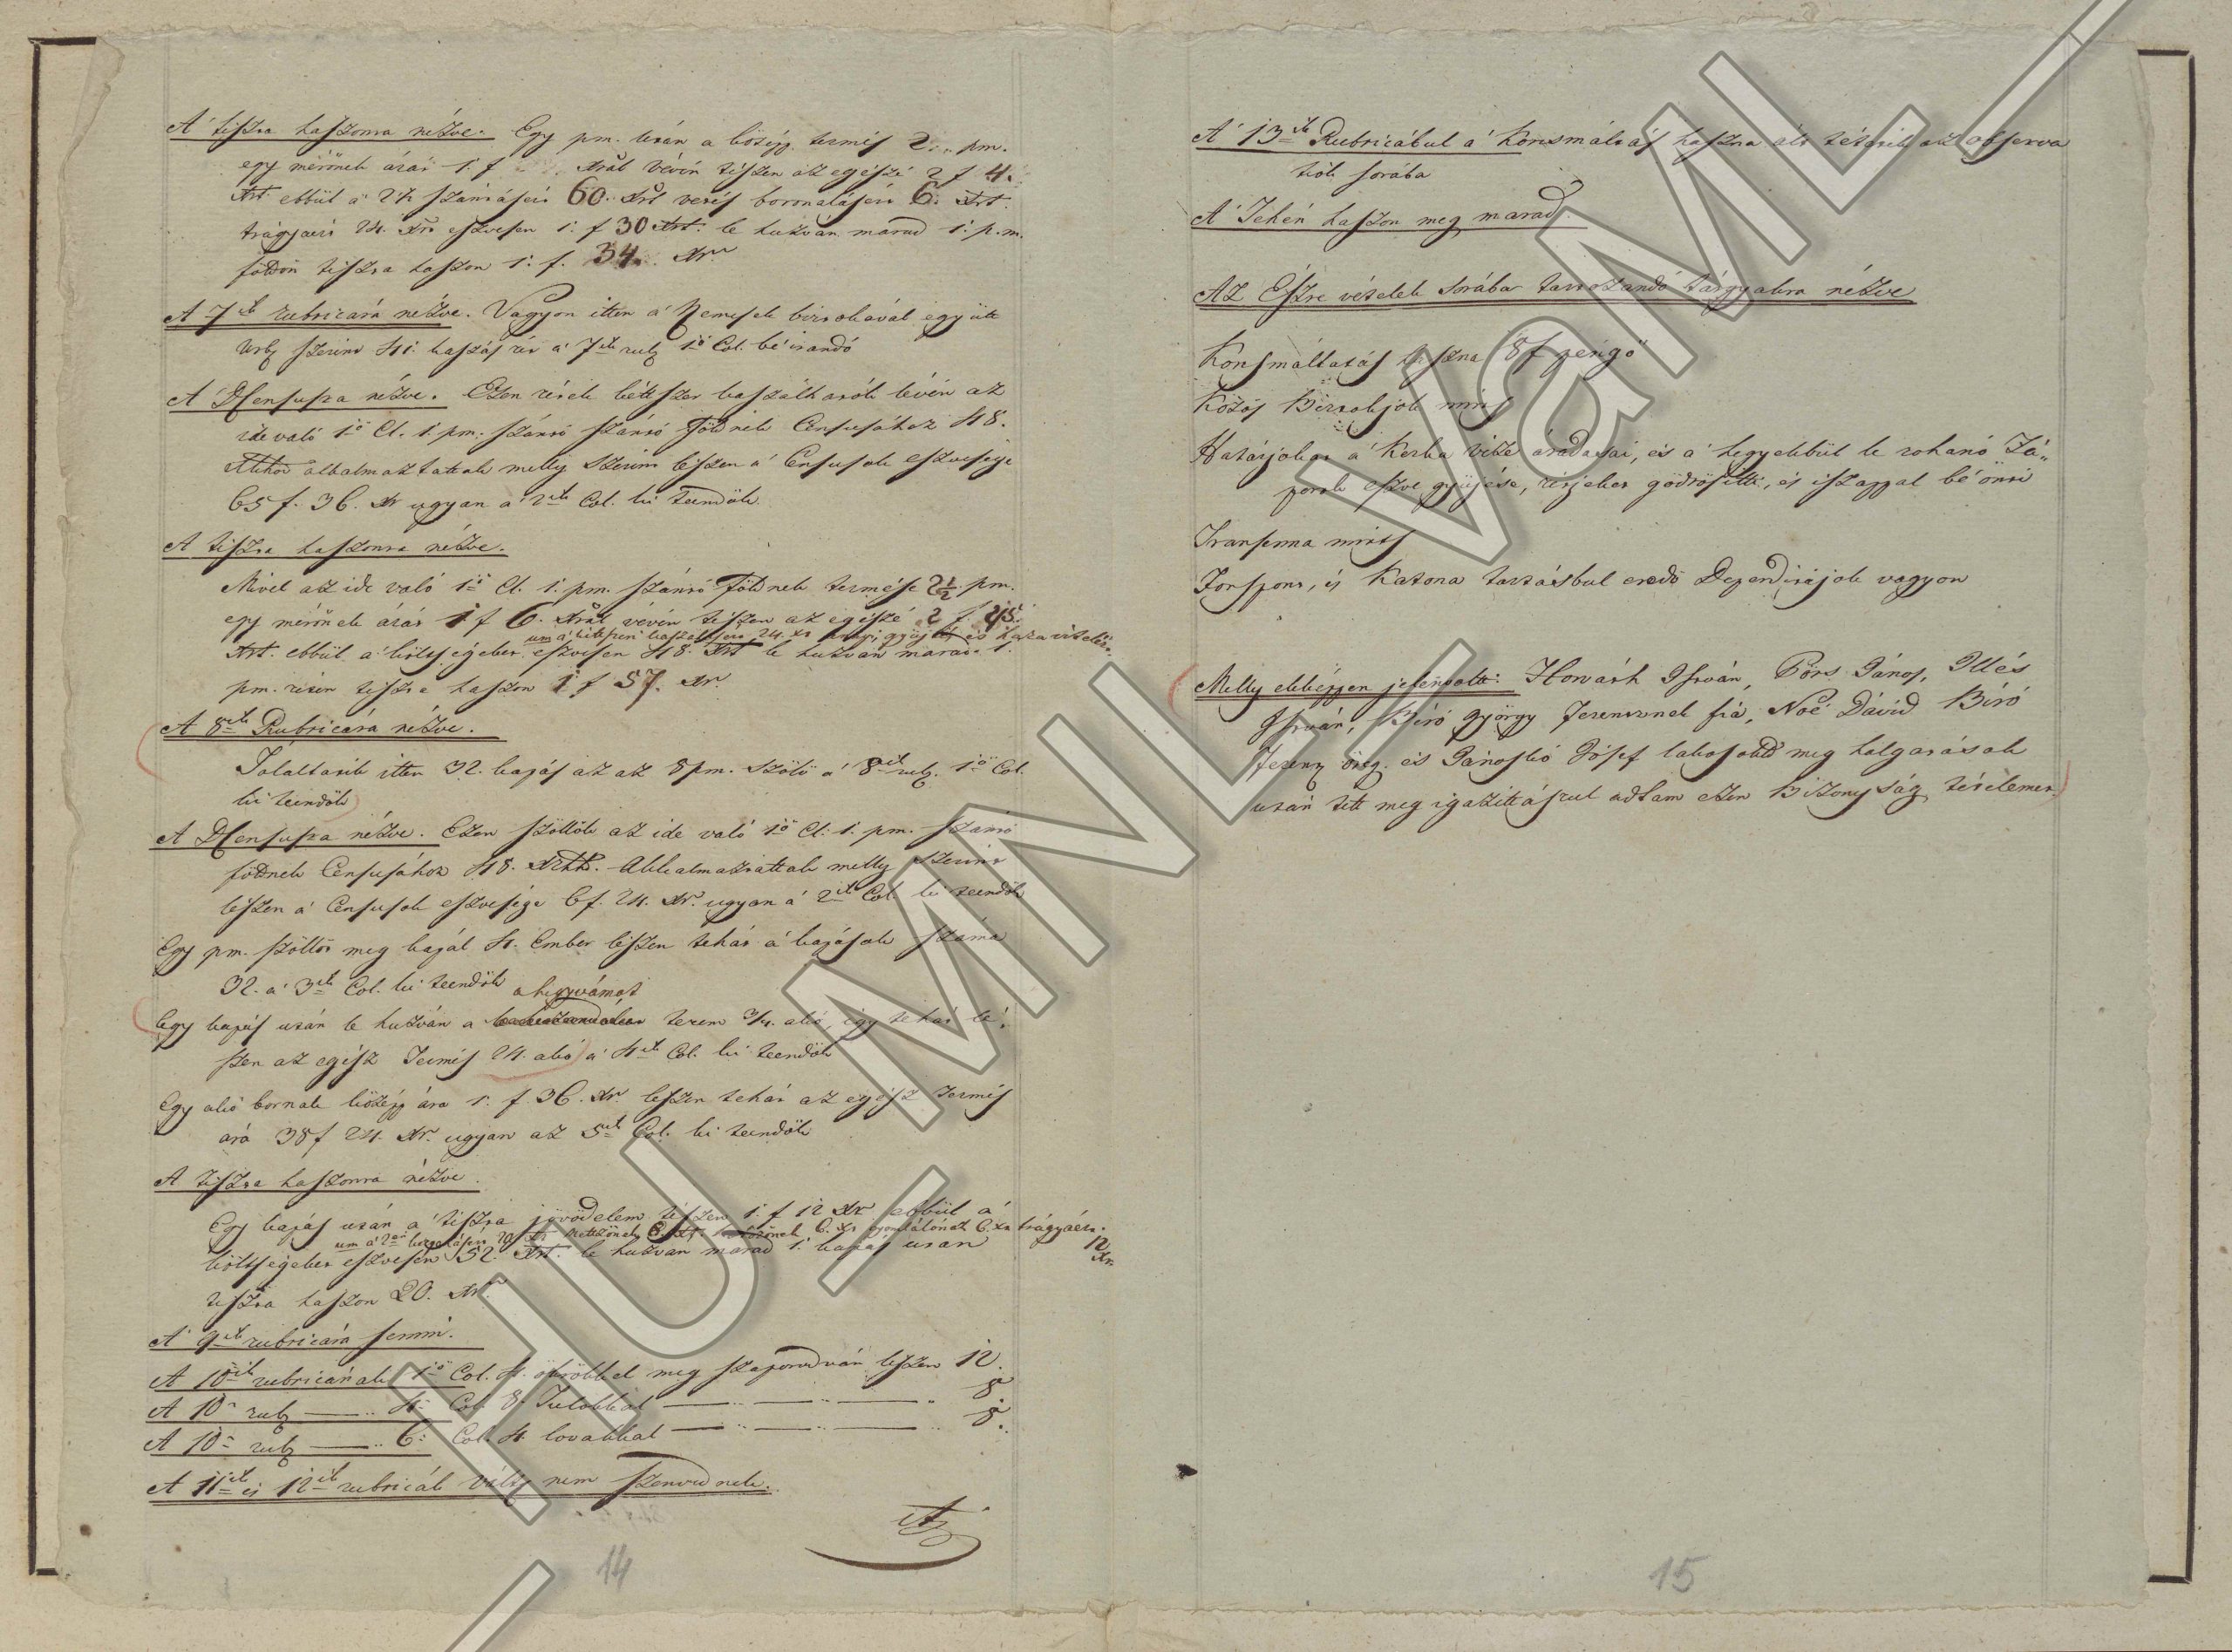 A' tiszta haszonra nézve. Egy pm. után a közép termés 2. pm.
egy mérőnek árát 1. f Xrál vévén tészen az egészé 2 f 4.
Xrt. ebbül a' 2 1/2 szántásért 60. Xrt vetés boronalásért 6. Xrt.
trágyáért 24. Xrt eszvesen 1. f 30 Xrt. le huzván marad 1. p.m.
földön tiszta haszon 1. f. 34. Xr
A 7ik rubricára nézve. Vagyon itten a' Nemesek birtokával együtt
Urb. szerint 41. kaszás rét a' 7ik rub. 1ő Col. bé irandó
A Censusra nézve. Ezen rétek kétszer kaszálhatók lévén az
ide való 1ő Cl. 1. pm. szántó szántó földnek Censusához 48.
alkalmaztattak melly szerint lészen a' Censusok eszvesége
65 f. 36. Xr ugyan a' 2ik Col. ki teendők
A tiszta haszonra nézve.
Mivel az ide való 1ő Cl. 1. pm. szántó földnek termése 2 1/2 pm.
egy mérőnek árát 1 f 6. Xrál vévén tészen az egészé 2 f. 45.
um a' kétszeri kaszálásért 24. xr gyüjtés és haza vitelért
Xrt. ebbül a' költségeket eszvesen 48. Xrt le huzván marad 1.
pm. réten tiszta haszon 1 f 57. Xr.
A 8ik Rubricára nézve.
Találtatik itten 32. kapás az az 8 pm. szőlő a' 8ik rub. 1ő Col.
ki teendők
A Censusra nézve. Ezen szőllők az ide való 1ő Cl. 1. pm. szántó
földnek Censusához 48. alkalmaztattak melly szerint
lészen a' Censusok eszvesége 6 f. 24. Xr. ugyan a' 2ik Col. ki teendők
Egy pm. szőllőt meg kapál 4. Ember lészen tehát a' kapások száma
32. a' 3ik Col. ki teendők
a hegyvámot
Egy kapás után le huzván a terem 3/4. akó, így tehát lé,
szen az egész Termés 24. akó a' 4ik Col. ki teendők
Egy akó bornak közép ára 1. f. 36. Xr. lészen tehát az egész Termés
ara 38 f 24. Xr. ugyan az 5ik Col. ki teendők
A tiszta haszonra nézve.
Egy kapás után a' tiszta jövödelem tészen 1. f 12 Xr ebbül a'
um a' kapálásért 20 Xr metzőnek 6. Xr 6. xr gyomlálónak 6. xr trágyáért
költségeket eszvesen 52. Xrt. le huzván marad 1. kapás után 12 xr
tiszta haszon 20. Xr.
A' 9ik rubricára semmi.
A 10ik rubricának 1ő Col. 4. ökrökkel meg szaporodván lészen 12.
A 10ik rub 4. Col. 8. Tulokkal 8.
A 10ik rub 6. Col. 4. lovakkal 8.
A 11ik és 12ik rubricák vált. nem szenvednek.
Az
14
A' 13ik Rubricábul a' Korsmáltatás haszna által tétetik az observa
tiók sorába
A' Tehén haszon meg marad.
Az Észre vételek sorába tartozandó tárgyakra nézve
Korsmáltatás haszna 8 f pengő
Közös Birtokjok nints
Határjokat a' Kerka vize áradásai, és a' hegyekbül le rohanó Zá„
porok eszve gyüjése, rétjeket gödrösitti, és iszappal bé önti
Transenna nints
Forspont, és Katona tartásbul eredő Deperditájok vagyon
Melly ekképpen jelenvolt: Horváth István, Pörs János, Illés
István, Biró György Ferentznek fia, Noé Dávid Biró
Ferentz öreg. és Jánoskó Jósef lakosok meg halgatások
után tett meg igazittásrul adtam ezen Bizonyság tételemet.
15
HU_MNL_VaML_